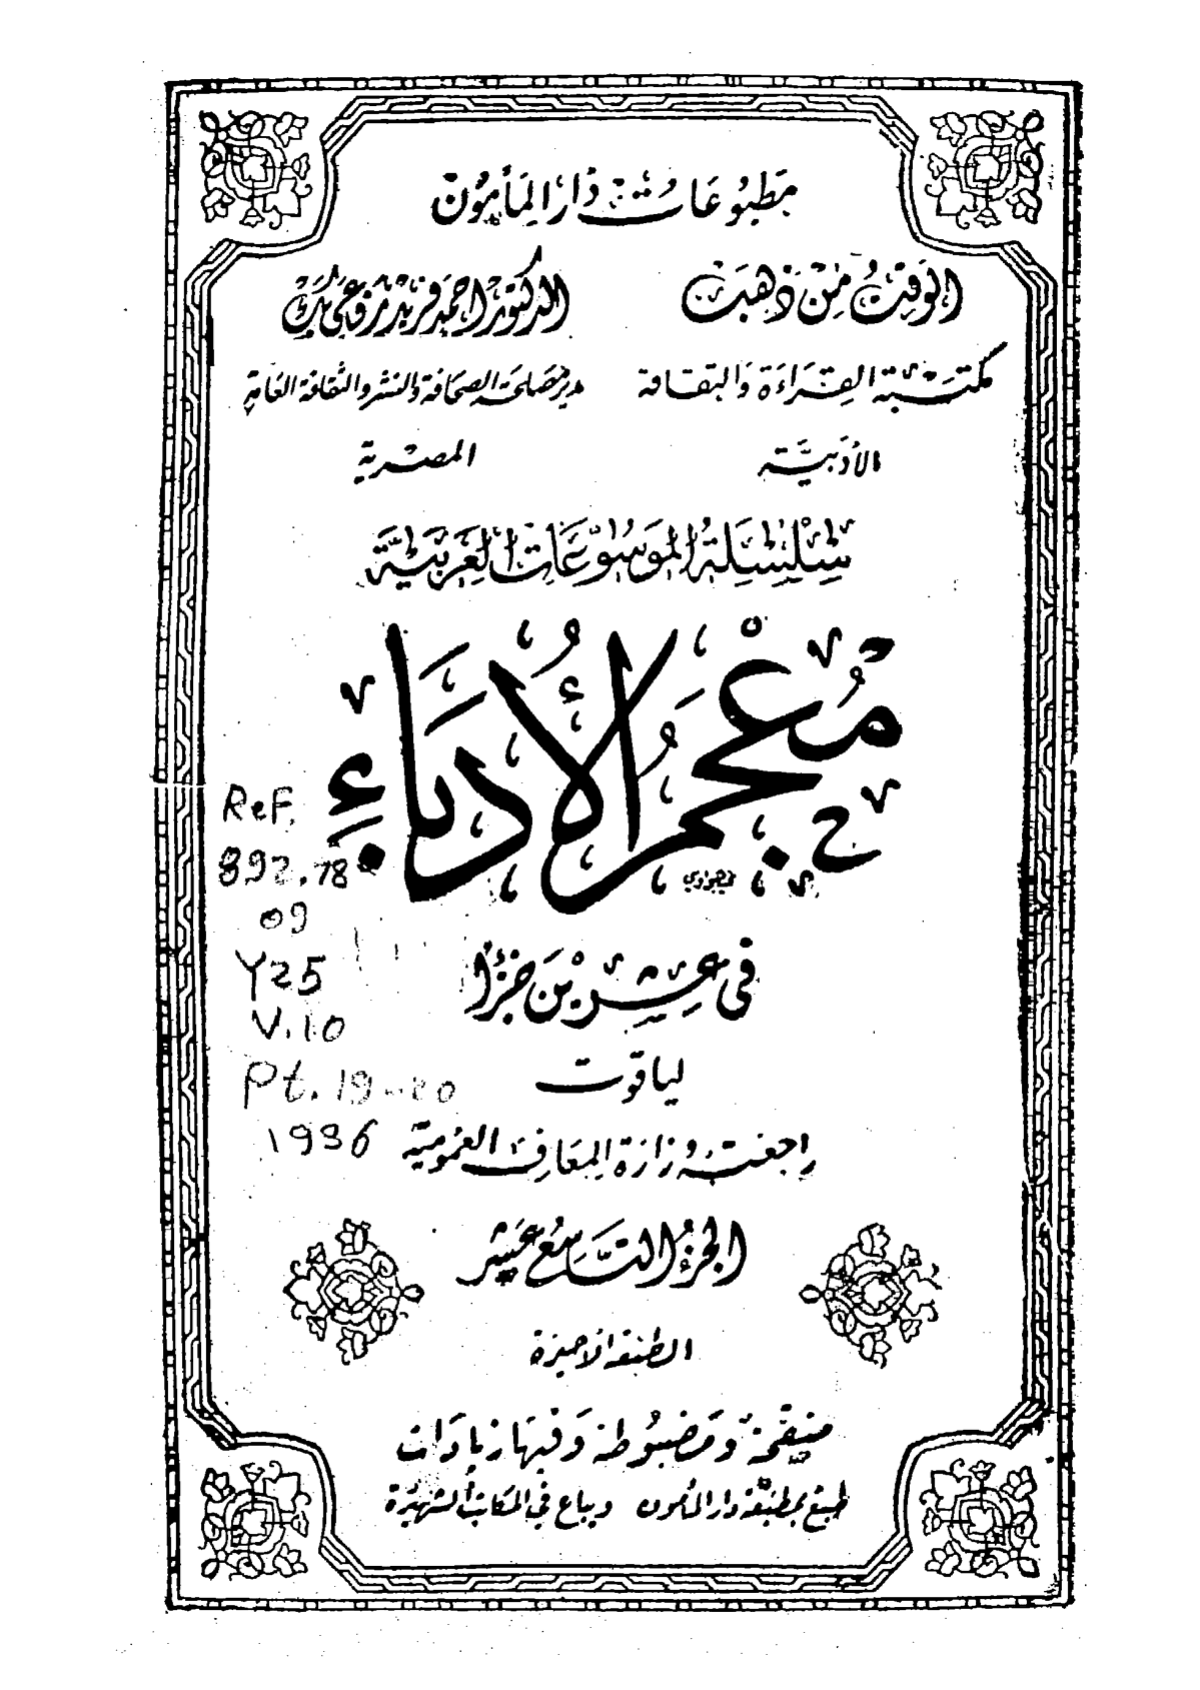 مَطبُوعَات دَار المَأمُون
الوَقتُ مِنْ ذَهَبٍ
الدكتور احمد فريد رفاعى بك
مكتبة القِرَاءَة وَالثقافة
مدير مصلحة الصحافة والنشر والثقافة العامة
الأدَبيَّة
المصرية
سِلْسِلَةُ المَوسُوعَات العَرَبيَّة
مُعْجَمُ الأُدَبَاءِ
فى عِشرِيْنَ جُزءًا
لياقوت
راجعته وزارة المعارف العمومية
الجُزءُ التَّاسِع عَشر
الطبعة الأخيرة
منقحة ومضبُوطة وَفيهَا زيادَات
طبع بمطبعة دار المأمون ويباع في المكاتب الشهيرة
Ref.
892.78
09
Y25
V.10
Pt. 19-20
1936